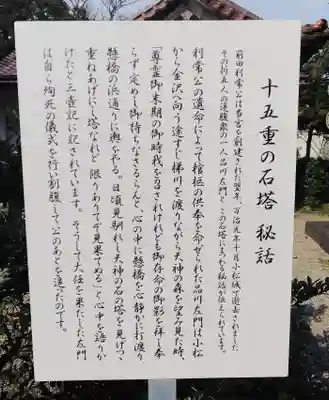 十五重の石塔 秘話
前田利常公は当宮を創建された翌年、万治元年十月小松城で逝去されました
その折五人の追腹衆の一人品川左門と、この石塔にまつわる秘話が伝えられています。
利常公の遺命によって棺柩の供奉を命ぜられた品川左門は小松
から金沢へ向う途すじ梯川を渡りながら天神の森を望み見た時、
「尊霊御来期の御時我を召されけれども御存命の御影を拝し奉
らず定めし御待ちなさるらんと、心の中に懸橋を心静かに打渡り
懸橋の浜通りに輿をやる。日頃見馴れし天神の石の塔を見げつゝ
重ねあげにし塔なれど 限りありてぞ見果てぬる」と心中を語りか
けたと三壺記に記されています。そうして大任を果たした左門
は自ら殉死の儀式を行い割腹して公のあとを追ったのです。